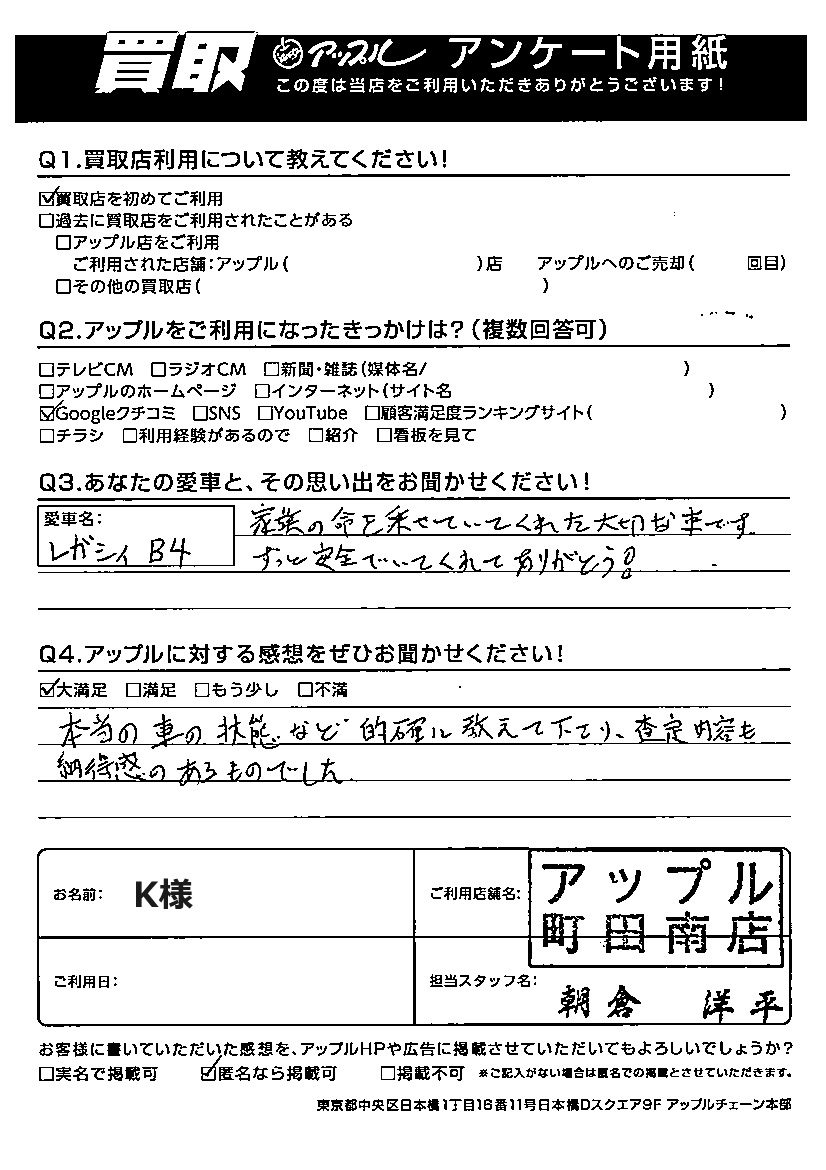 買取 アップル アンケート用紙
この度は当店をご利用いただきありがとうございます!
Q1.買取店利用について教えてください!
☑買取店を初めてご利用
□過去に買取店をご利用されたことがある
□アップル店をご利用
ご利用された店舗:アップル( )店 アップルへのご売却( 回目)
□その他の買取店( )
Q2.アップルをご利用になったきっかけは?(複数回答可)
□テレビCM □ラジオCM □新聞・雑誌(媒体名/ )
□アップルのホームページ □インターネット(サイト名 )
☑Googleクチコミ □SNS □YouTube □顧客満足度ランキングサイト( )
□チラシ □利用経験があるので □紹介 □看板を見て
Q3.あなたの愛車と、その思い出をお聞かせください!
愛車名:
レガシィ B4
家族の命を乗せていてくれた大切な車です。
ずっと安全でいてくれてありがとう!
Q4.アップルに対する感想をぜひお聞かせください!
☑大満足 □満足 □もう少し □不満
本当の車の状態など的確に教えて下さり、査定内容も
納得感のあるものでした。
お名前: K様
ご利用店舗名: アップル
町田南店
ご利用日:
担当スタッフ名: 朝倉 洋平
お客様に書いていただいた感想を、アップルHPや広告に掲載させていただいてもよろしいでしょうか?
□実名で掲載可 ☑匿名なら掲載可 □掲載不可 ※ご記入がない場合は匿名での掲載とさせていただきます。
東京都中央区日本橋1丁目16番11号日本橋Dスクエア9F アップルチェーン本部